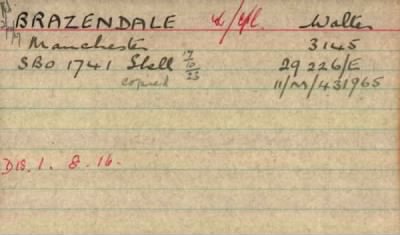 BRAZENDALE L/Cpl. Walter
Manchester 3145
SBO 1741 Shell 17/10/23 29226/E
copied 11/M/431965
Dis. 1. 8. 16.